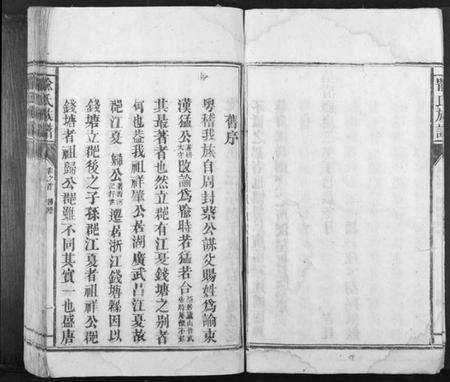 舊序
粵稽我族自周封祭公謀父賜姓爲諭東
漢猛公改諭爲喩時若猛者台
其最著者也然立郡有江夏錢塘之别者
何也蓋我祖祥公居湖廣武昌江夏故
郡江夏歸公遷居浙江錢塘縣因以
錢塘立郡後之子孫郡江夏者祖祥公郡
錢塘者祖歸公郡雖不同其實一也盛唐
喩氏族譜
氏族譜